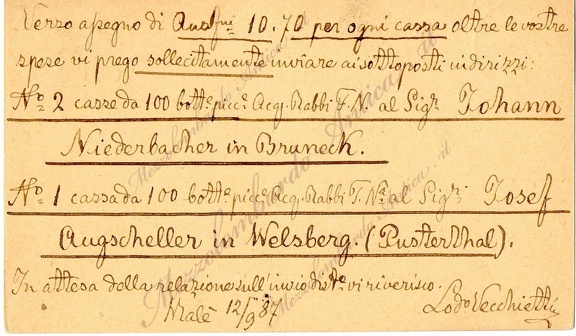 Verso assegno di Aus fni 10.70 per ogni cassa oltre le vostre
spese vi prego sollecitamente inviare ai sottoposti indirizzi:
No 2 casse da 100 botte picc. Acq. Rabbi F. Na. al Sigr. Johann
Niederbacher in Bruneck.
No 1 cassa da 100 botte picc. Acq. Rabbi F. Na. al Sigr. Josef
Augscheller in Welsberg. (Pusterthal).
In attesa della relazione sull'invio vi riverisco.
Malè 12/9 87 Lodo Vecchietti